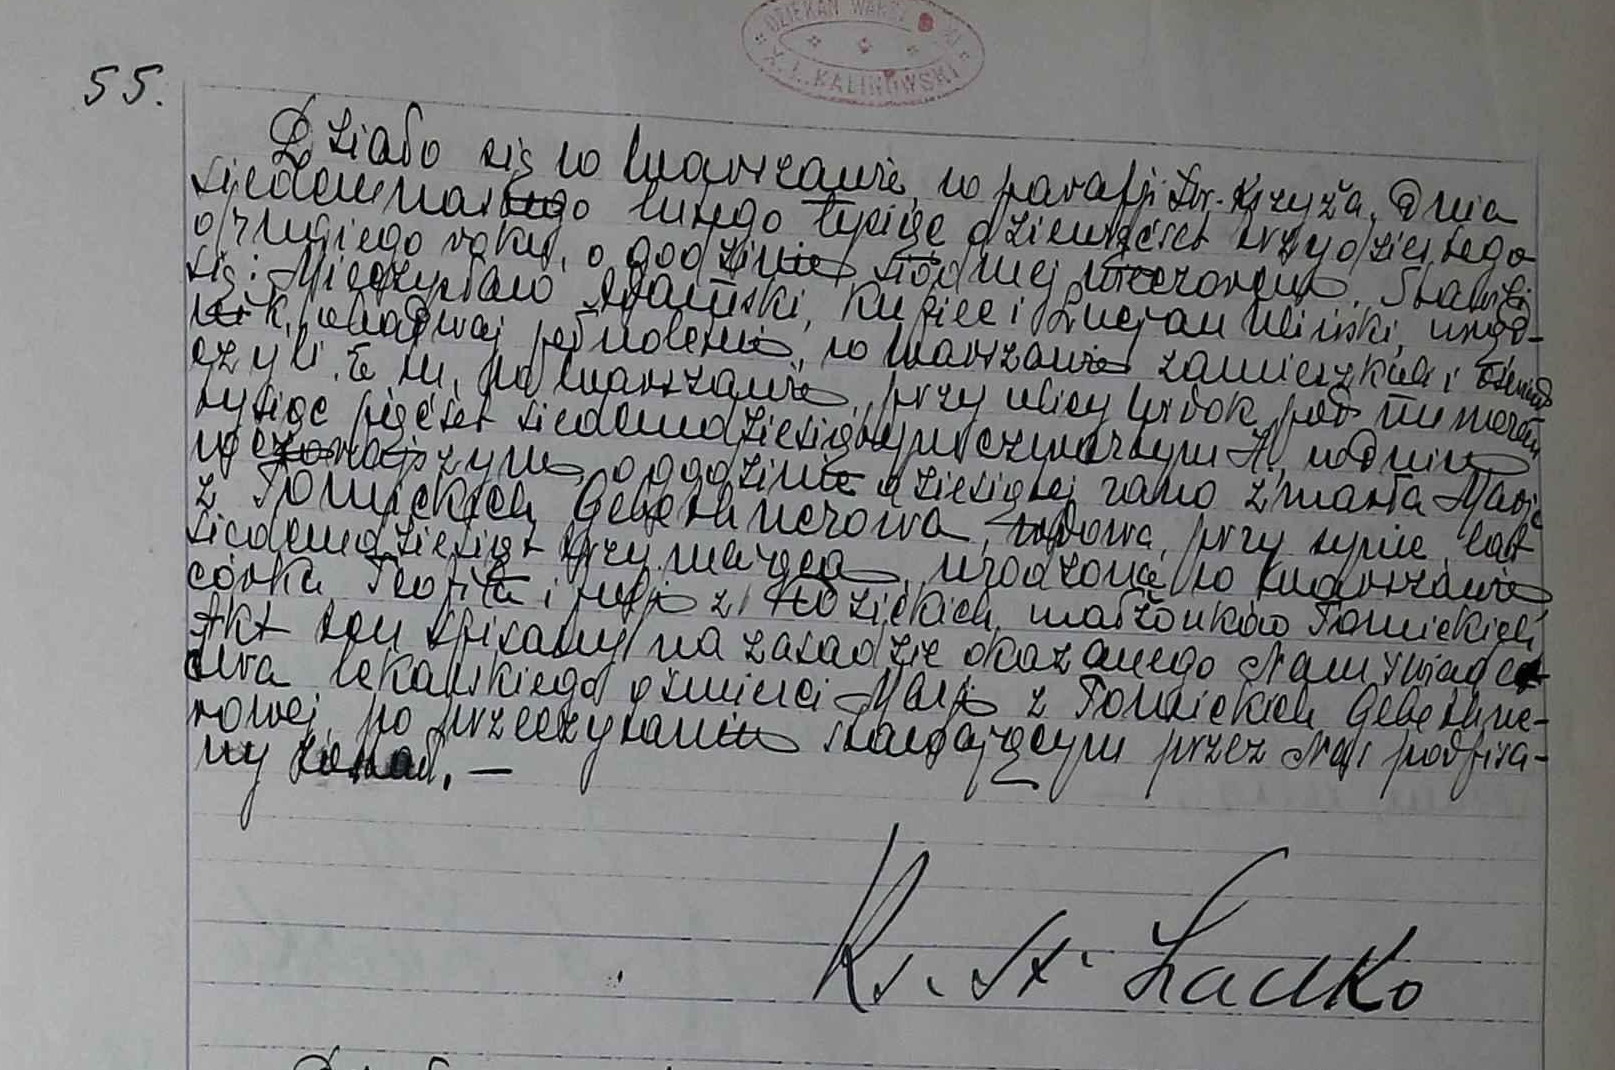 DZIEKAN WARSZ
X. L. KALINOWSKI
55.
Działo się w Warszawie, w parafji Św. Krzyża, Dnia
siedemnastego lutego tysiąc dziewięćset trzydziestego
drugiego roku, o godzinie siódmej wieczorem. Stawili
się: Mieczysław kupiec i Lucjan Uliński, urzęd-
nik, obadwaj pełnoletni, w Warszawie zamieszkali i oświad
czyli, że tu, w Warszawie, przy ulicy Widok, pod numerem
tysiąc pięćset siedemdziesiątym czwartym A, w dniu
wczorajszym, o godzinie dziesiątej rano zmarła Marja
z Tomickich Gebethnerowa, wdowa, przy synie, lat
siedemdziesiąt trzy mająca, urodzona w Warszawie
córka Teofila i Julji z małżonków Tomickich.
Akt ten spisany na zasadzie okazanego Nam świadect-
wa lekarskiego o śmierci Marji z Tomickich Gebethne-
rowej, po przeczytaniu stawającym przez Nas podpisa-
ny został. —
Ks. St. Ladko